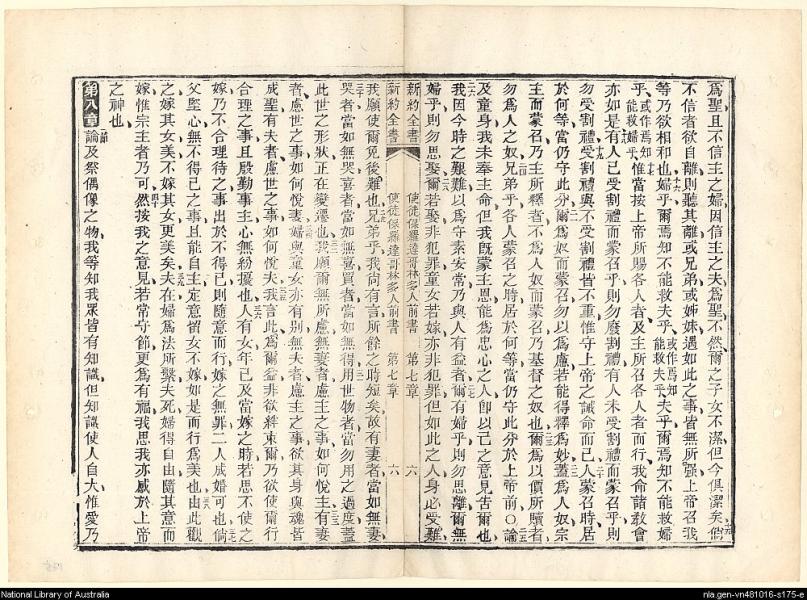 爲聖且不信主之婦因信主之夫爲聖不然爾之子女不潔但今俱潔矣倘
不信者欲自離則聽其離或兄弟或姊妹遇如此之事皆無所强上帝召我
等乃欲相和也婦乎爾焉知不能救夫乎或作焉知能救夫乎夫乎爾焉知不能救婦
乎或作焉知能救婦乎惟當按上帝所賜各人者及主所召各人者而行我命諸敎會
亦如是有人已受割禮而蒙召乎則勿廢割禮有人未受割禮而蒙召乎則
勿受割禮受割禮與不受割禮皆不重惟守上帝之誡命而已人蒙召時居
於何等當仍守此分爾爲奴而蒙召勿以爲慮若能得釋爲妙蓋爲人奴宗
主而蒙召乃主所釋者不爲人奴而蒙召乃基督之奴也爾爲以價所贖者
勿爲人之奴兄弟乎各人蒙召之時居於何等當仍守此分於上帝前○論
及童身我未奉主命但我旣蒙主恩能爲忠心之人卽以己之意見告爾也
我因今時之艱難以爲守素安常乃與人有益者爾有婦乎則勿思離爾無
婦乎則勿思娶爾若娶非犯罪童女若嫁亦非犯罪但如此之人身必受難
新約全書 使徒保羅達哥林多人前書 第七章 六
新約全書 使徒保羅達哥林多人前書 第七章 六
我願使爾免後難也兄弟乎我尚有言所餘之時短矣故有妻者當如無妻
哭者當如無哭喜者當如無喜買者當如無得用世物者當勿用之過度蓋
此世之形狀正在變遷也我願爾無所慮無妻者慮主之事如何悅主有妻
者慮世之事如何悅妻婦與童女亦有別無夫者慮主之事欲其身與魂皆
成聖有夫者慮世之事如何悅夫我言此爲爾益非欲絆束爾乃欲使爾行
合理之事且殷勤事主心無紛擾也人有女年已及當嫁之時若思不使之
嫁乃不合理待之事出於不得已則隨意而行嫁之無罪二人成婚可也倘
父堅心無不得已之事且能自主定意留女不嫁如是而行爲美也由此觀
之嫁其女美不嫁其女更美矣夫在婦爲法所繫夫死婦得自由隨其意而
嫁惟宗主者乃可然按我之意見若常守節更爲有福我思我亦感於上帝
之神也
第八章 論及祭偶像之物我等知我眾皆有知識但知識使人自大惟愛乃
National Library of Australia
nla.gen-vn481016-s175-e